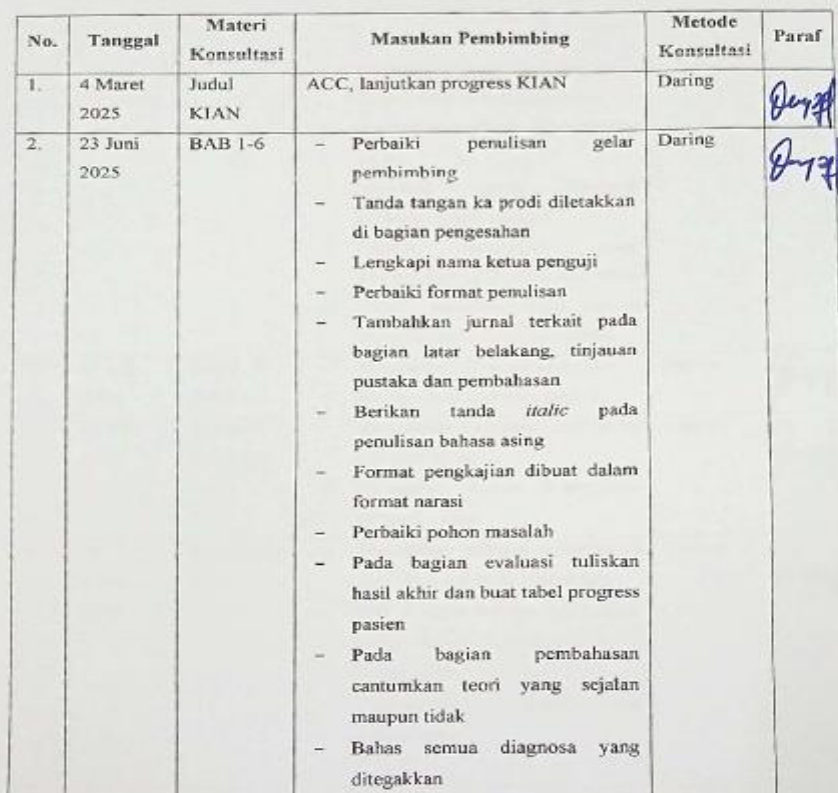 No. Tanggal Materi Konsultasi Masukan Pembimbing Metode Konsultasi Paraf
1. 4 Maret 2025 Judul KIAN ACC, lanjutkan progress KIAN Daring
2. 23 Juni 2025 BAB 1-6 Daring
– Perbaiki penulisan gelar
pembimbing
– Tanda tangan ka prodi diletakkan
di bagian pengesahan
– Lengkapi nama ketua penguji
– Perbaiki format penulisan
– Tambahkan jurnal terkait pada
bagian latar belakang, tinjauan
pustaka dan pembahasan
– Berikan tanda italic pada
penulisan bahasa asing
– Format pengkajian dibuat dalam
format narasi
– Perbaiki pohon masalah
– Pada bagian evaluasi tuliskan
hasil akhir dan buat tabel progress
pasien
– Pada bagian pembahasan
cantumkan teori yang sejalan
maupun tidak
– Bahas semua diagnosa yang
ditegakkan